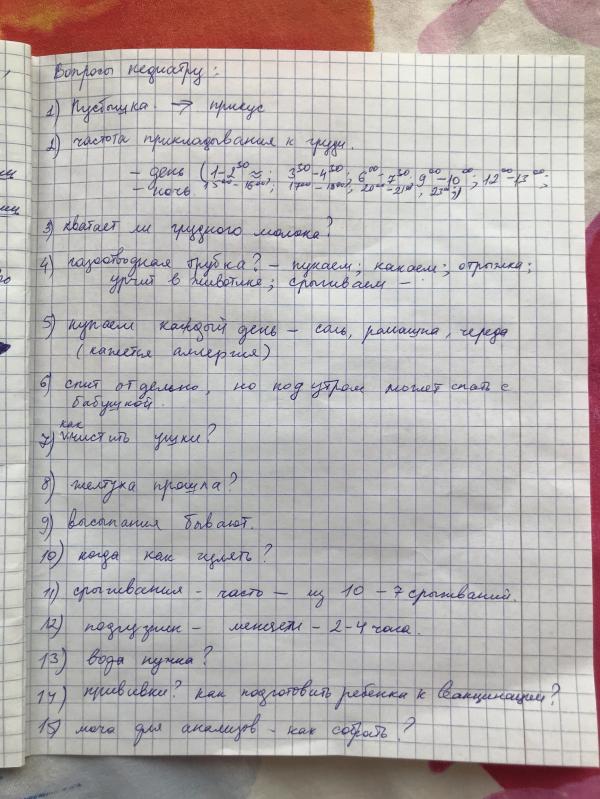 Вопросы педиатру:
1) Пустышка → прикус
2) частота прикладывания к груди.
- день (1-2³⁰ ≈; 3³⁰-4³⁰; 6⁰⁰-7³⁰; 9⁰⁰-10⁰⁰; 12⁰⁰-13⁰⁰;
- ночь 15⁰⁰-16⁰⁰; 17⁰⁰-18⁰⁰; 20⁰⁰-21⁰⁰; 23⁰⁰)
3) хватает ли грудного молока?
4) газоотводная трубка? - пукаем; какаем; отрыжка;
урчит в животике; срыгиваем -
5) купаем каждый день - соль, ромашка, череда
(кажется аллергия)
6) спит отдельно, но под утром может спать с
бабушкой.
7) как чистить ушки?
8) желтуха прошла?
9) высыпания бывают.
10) когда как гулять?
11) срыгивания - часто - из 10 - 7 срыгиваний.
12) подгузник - меняем - 2-4 часа.
13) вода нужна?
14) прививки? как подготовить ребенка к вакцинации?
15) моча для анализов - как собрать?